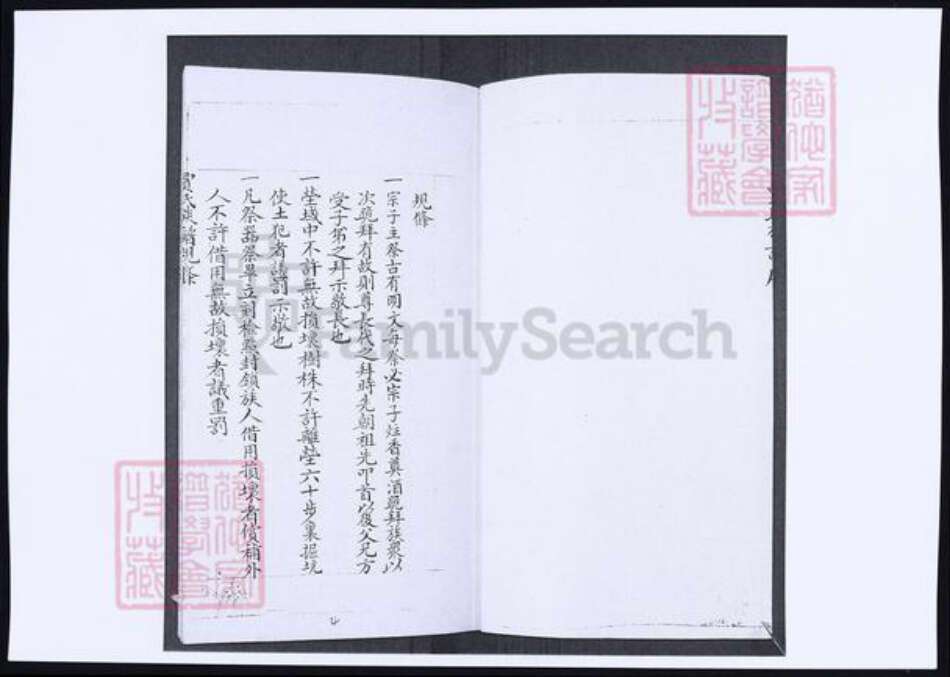 規條
一宗子主祭古有明文每祭必宗子炷香奠酒跪拜族衆以
次跪拜有故則尊長代之拜時先朝祖先叩首以後父兄方
受子弟之拜示敬長也
一塋域中不許無故損壞樹株不許離塋六十步裏掘坑
使土犯者議罰示敬也
一凡祭器祭畢立刻檢點封鎖族人借用損壞者償補外
人不許借用無故損壞者議重罰
氏 譜規條
猶他家
譜學會
收藏
猶他家
譜學會
收藏
FamilySearch